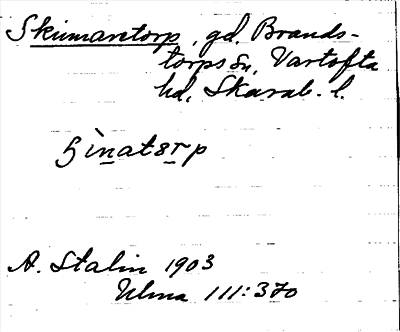 Skinnaretorp, gd. Brands-
torps sn, Vartofta
hd, Skarab. l.
A. Stalin 1903
Ulma 111:370